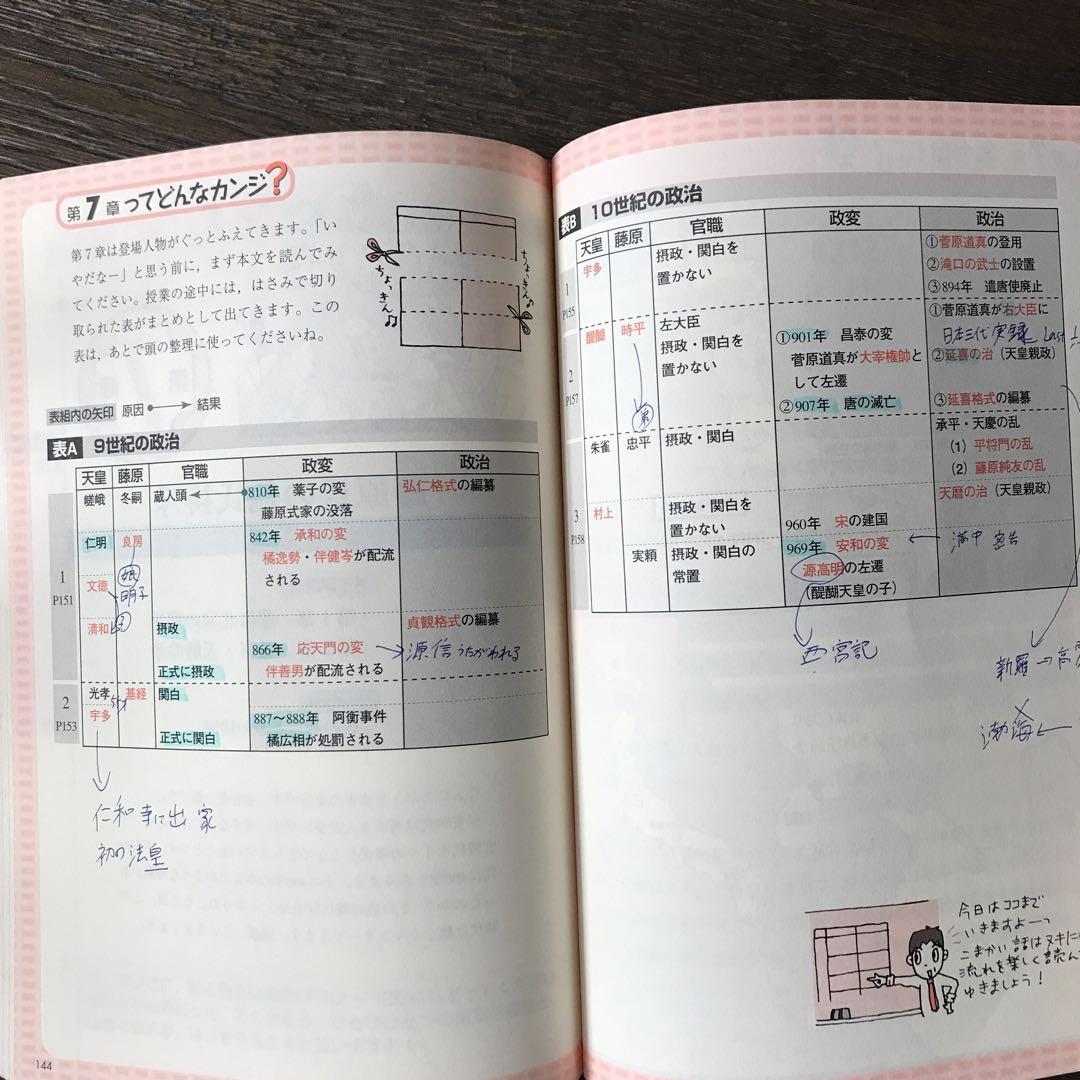 第7章ってどんなカンジ?
第7章は登場人物がぐっとふえてきます。「い
やだなー」と思う前に,まず本文を読んでみ
てください。授業の途中には,はさみで切り
取られた表がまとめとして出てきます。この
表は,あとで頭の整理に使ってくださいね。
ちょっきん♫
ちょっきん♪
表組内の矢印 原因 → 結果
表A 9世紀の政治
天皇 藤原 官職 政変 政治
嵯峨 冬嗣 蔵人頭 810年 薬子の変 弘仁格式の編纂
藤原式家の没落
仁明 良房 842年 承和の変
橘逸勢・伴健岑が配流
される
1
P151
文徳
娘
明子
清和 摂政 貞観格式の編纂
866年 応天門の変 → 源信うたがわれる
正式に摂政 伴善男が配流される
2
P153
光孝 基経 関白
宇多 887〜888年 阿衡事件
正式に関白 橘広相が処罰される
仁和寺に出家
初の法皇
144
表B 10世紀の政治
天皇 藤原 官職 政変 政治
1
P155
宇多 摂政・関白を
置かない
①菅原道真の登用
②滝口の武士の設置
③894年 遣唐使廃止
2
P157
醍醐 時平 左大臣
摂政・関白を
置かない
①901年 昌泰の変
菅原道真が大宰権帥と
して左遷
②907年 唐の滅亡
①菅原道真が右大臣に
日本三代実録 Last
②延喜の治(天皇親政)
③延喜格式の編纂
弟
朱雀 忠平 摂政・関白
承平・天慶の乱
(1) 平将門の乱
(2) 藤原純友の乱
3
P158
村上 摂政・関白を
置かない
960年 宋の建国
天暦の治(天皇親政)
実頼 摂政・関白の
常置
969年 安和の変 ← 満中
源高明の左遷
(醍醐天皇の子)
西宮記
新羅→高
渤海
今日はココまで
いきますよーっ
こまかい話はヌキに
流れを楽しく読んで
ゆきましょう!